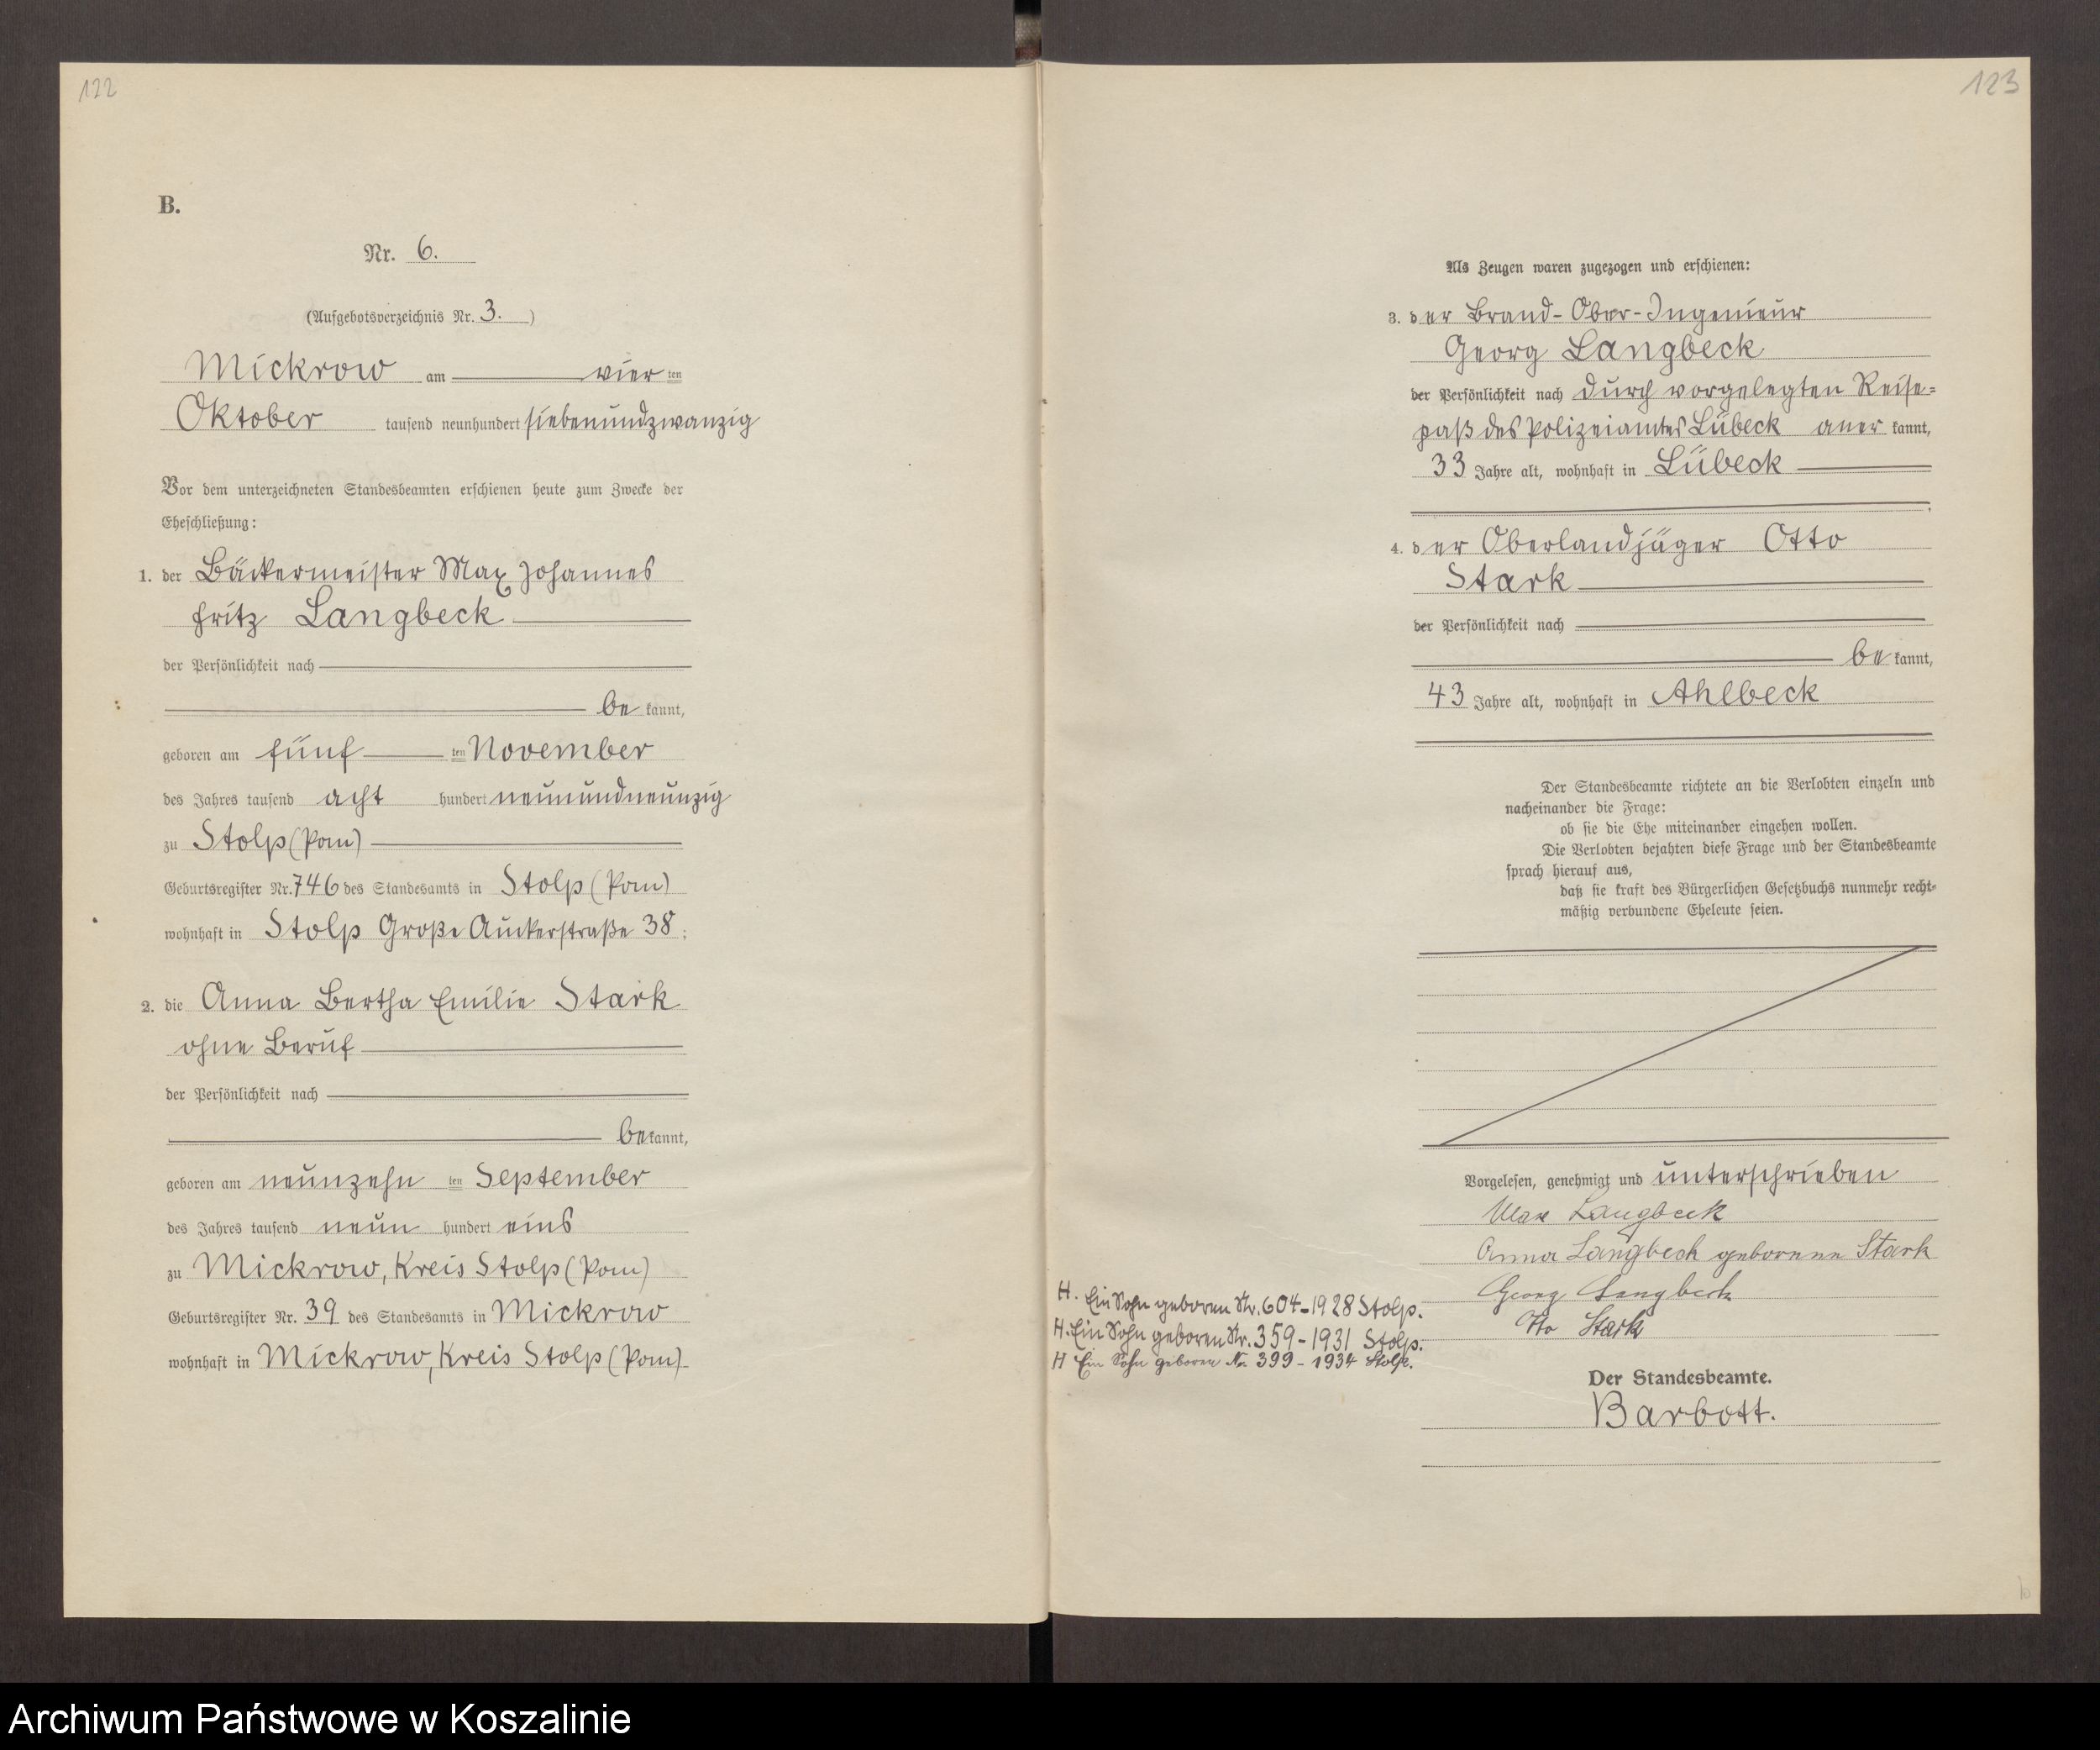 122
B.
Nr. 6.
(Aufgebotsverzeichnis Nr. 3. )
Mickrow am vier ten
Oktober tausend neunhundert siebenundzwanzig
Vor dem unterzeichneten Standesbeamten erschienen heute zum Zwecke der
Eheschließung:
1. der Bäckermeister Max Johannes
Fritz Langbeck
der Persönlichkeit nach
be kannt,
geboren am fünf ten November
des Jahres tausend acht hundert neunundneunzig
zu Stolp (Pom)
Geburtsregister Nr. 746 des Standesamts in Stolp (Pom)
wohnhaft in Stolp Große Auckerstraße 38 ;
2. die Anna Bertha Emilie Stark
ohne Beruf
der Persönlichkeit nach
be kannt,
geboren am neunzehn ten September
des Jahres tausend neun hundert eins
zu Mickrow, Kreis Stolp (Pom)
Geburtsregister Nr. 39 des Standesamts in Mickrow
wohnhaft in Mickrow, Kreis Stolp (Pom)
123
Als Zeugen waren zugezogen und erschienen:
3. der Brand-Ober-Ingenieur
Georg Langbeck
der Persönlichkeit nach durch vorgelegten Reise=
paß des Polizeiamtes Lübeck aner kannt,
33 Jahre alt, wohnhaft in Lübeck
4. der Oberlandjäger Otto
Stark
der Persönlichkeit nach
be kannt,
43 Jahre alt, wohnhaft in Ahlbeck
Der Standesbeamte richtete an die Verlobten einzeln und
nacheinander die Frage:
ob sie die Ehe miteinander eingehen wollen.
Die Verlobten bejahten diese Frage und der Standesbeamte
sprach hierauf aus,
daß sie kraft des Bürgerlichen Gesetzbuchs nunmehr recht=
mäßig verbundene Eheleute seien.
Vorgelesen, genehmigt und unterschrieben
Max Langbeck
Anna Langbeck geborene Stark
Georg Langbeck
Otto Stark
H. Ein Sohn geboren Nr. 604-1928 Stolp.
H. Ein Sohn geboren Nr. 359-1931 Stolp.
H Ein Sohn geboren Nr. 399-1934 Stolp.
Der Standesbeamte.
Barbott.
Archiwum Państwowe w Koszalinie